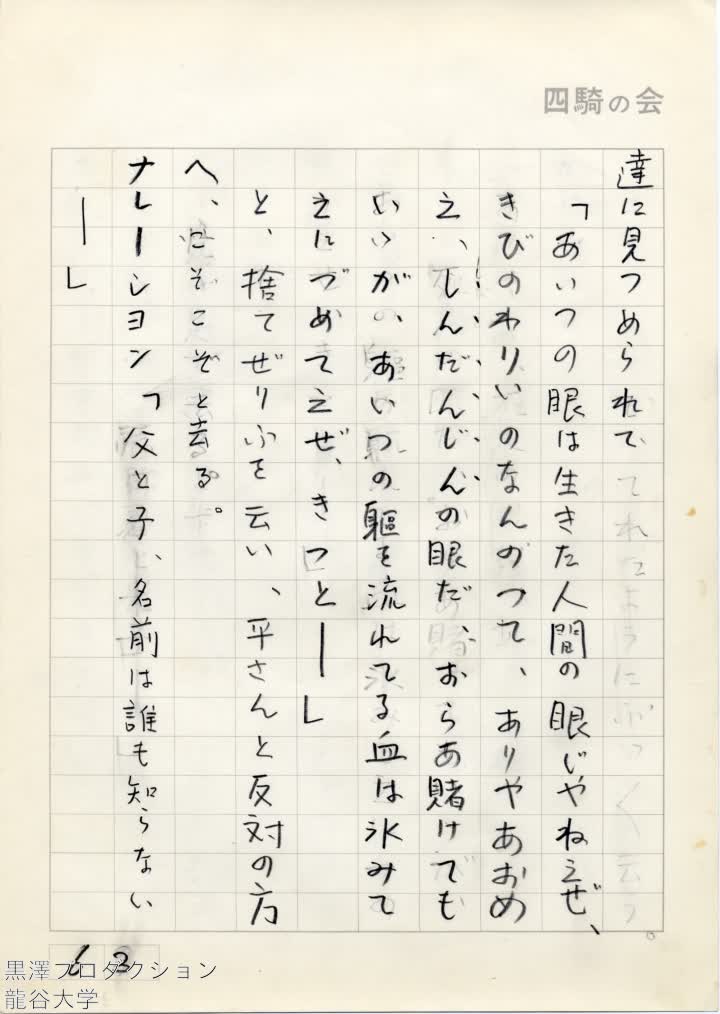 四騎の会
達に見つめられて
「あいつの眼は生きた人間の眼じやねえぜ、
きびのわりいのなんのつて、ありやあおめ
え、しんだんじんの眼だ、おらあ賭けても
いいが、あいつの軀を流れてる血は氷みて
えにづめてえぜ、きつとー」
と、捨てぜりふを云い、平さんと反対の方
へ、こそこそと去る。
ナレーシヨン「父と子、名前は誰も知らない
ー」
63
黒澤プロダクション
龍谷大学